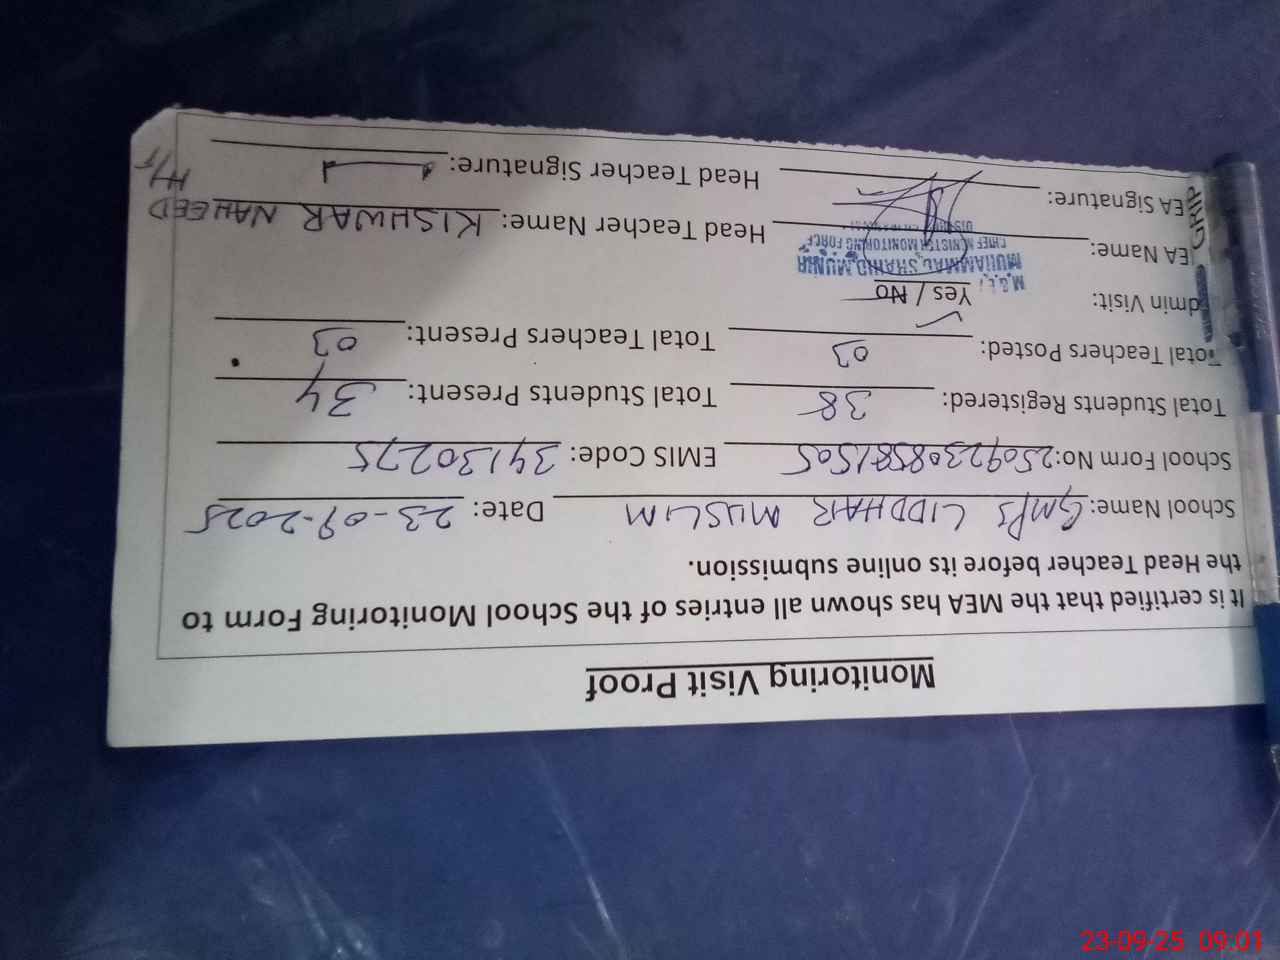 Monitoring Visit Proof
It is certified that the MEA has shown all entries of the School Monitoring Form to
the Head Teacher before its online submission.
School Name: GMPS LIDDHAR MUSLIM Date: 23-09-2025
School Form No: EMIS Code: 34130275
Total Students Registered: 38 Total Students Present: 34
Total Teachers Posted: 03 Total Teachers Present: 03
dmin Visit: Yes / No
M.E.A
MUHAMMAD SHAHID MUNIR
CHIEF MINISTER MONITORING FORCE
EA Name: Head Teacher Name: KISHWAR NAHEED
H/T
EA Signature: Head Teacher Signature:
23-09-25 09:01